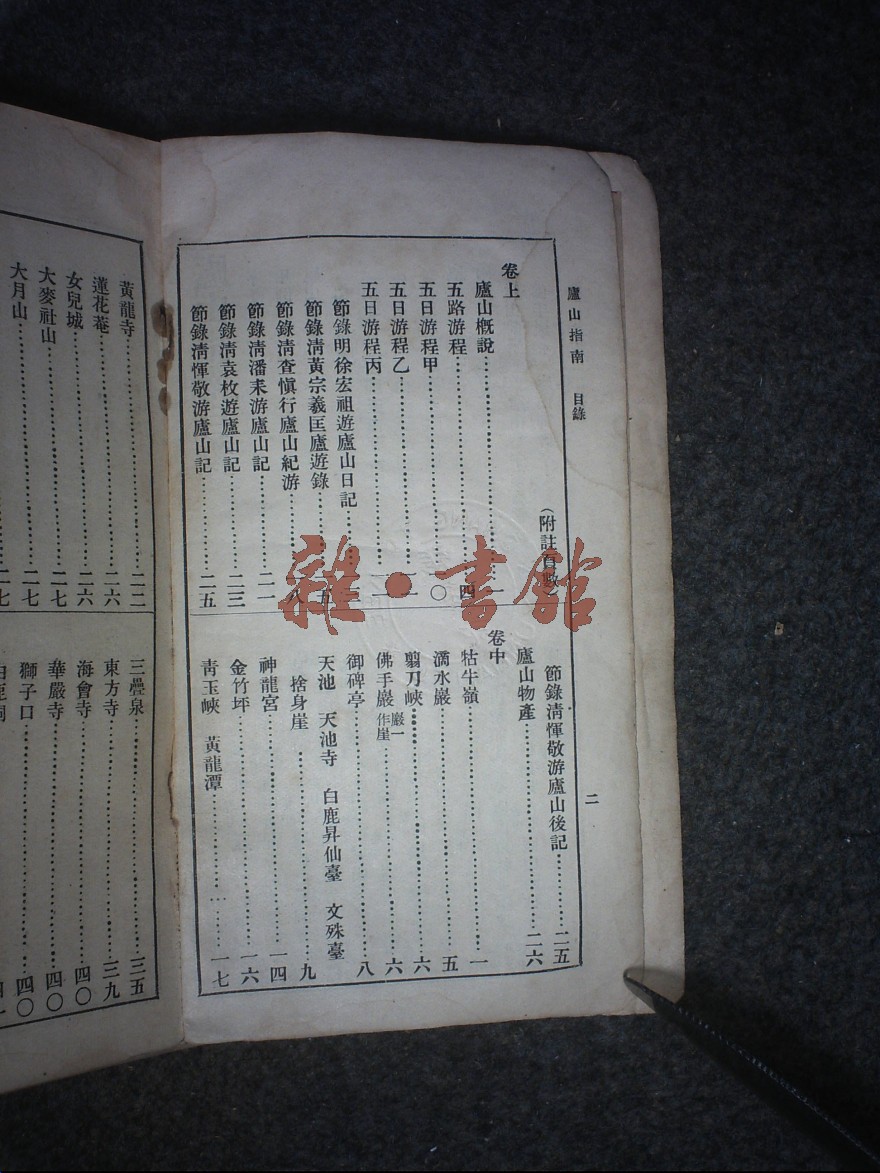 廬山指南 目錄
二
卷上
(附註頁數)
廬山概說 一
五路游程 四
五日游程甲 一〇
五日游程乙
五日游程丙
節錄明徐宏祖遊廬山日記
節錄清黃宗羲匡廬遊錄
節錄清查慎行廬山紀游
節錄清潘耒游廬山記 二一
節錄清袁枚遊廬山記 二三
節錄清惲敬游廬山記 二五
節錄清惲敬游廬山後記 二五
廬山物產 二六
卷中
牯牛嶺 一
滴水巖 五
翦刀峽 六
佛手巖 巖一作崖 六
御碑亭 八
天池 天池寺 白鹿昇仙臺 文殊臺
捨身崖 九
神龍宮 一四
金竹坪 一六
青玉峽 黃龍潭 一七
黃龍寺 二二
蓮花菴 二六
女兒城 二六
大麥社山 二七
大月山 二七
二七
三疊泉 三五
東方寺 三九
海會寺 四〇
華嚴寺 四〇
獅子口 四〇
雜·書館